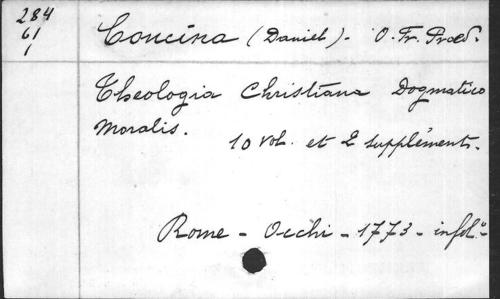 284
61
1
Concina (Daniel). O. Fr. Praed.
Theologia Christiana Dogmatico
Moralis.
10 vol. et 2 suppléments.
Rome - Occhi - 1773 - in fol.º